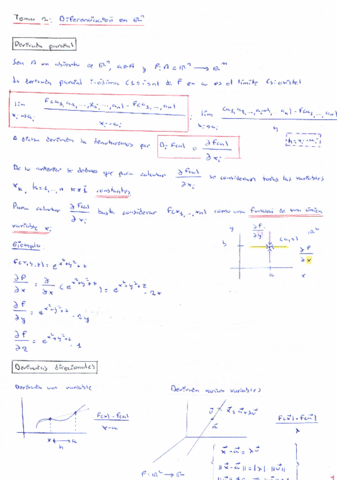 Tema 2: Diferenciación en ℝⁿ
Derivada parcial
Sea A un abierto de ℝⁿ, a∈A y F: A⊂ℝⁿ → ℝ
La derivada parcial i-ésima (1≤i≤n) de F en a es el límite (si existe)
lim xᵢ→aᵢ F(a₁,a₂,...,xᵢ,...,aₙ) - F(a₁,...,aₙ) / xᵢ-aᵢ
lim h→0
A dicha derivada la denotaremos por Dᵢ F(a) o ∂F(a)/∂xᵢ
De lo anterior se deduce que para calcular ∂F(a)/∂xᵢ se consideran todas las variables
xₖ, k=1,...,n k≠i constantes
Para calcular ∂F(a)/∂xᵢ basta considerar F(x₁,...,xₙ) como una función de una única
variable xᵢ
Ejemplo
F(x,y,z) = e^(x²+y²+z)
∂F/∂x = ∂/∂x (e^(x²+y²+z)) = e^(x²+y²+z) · 2x
∂F/∂y = e^(x²+y²+z) · 2y
∂F/∂z = e^(x²+y²+z) · 1
y
∂F/∂y
b
∂F/∂x
a
x
Derivadas direccionales
Derivada una variable
Derivada varias variables
F(x) - F(a) / x-a
F(x⃗) - F(a⃗) / λ
x⃗ = a⃗ + λu⃗
x⃗ - a⃗ = λu⃗
||x⃗ - a⃗|| = |λ| · ||u⃗||